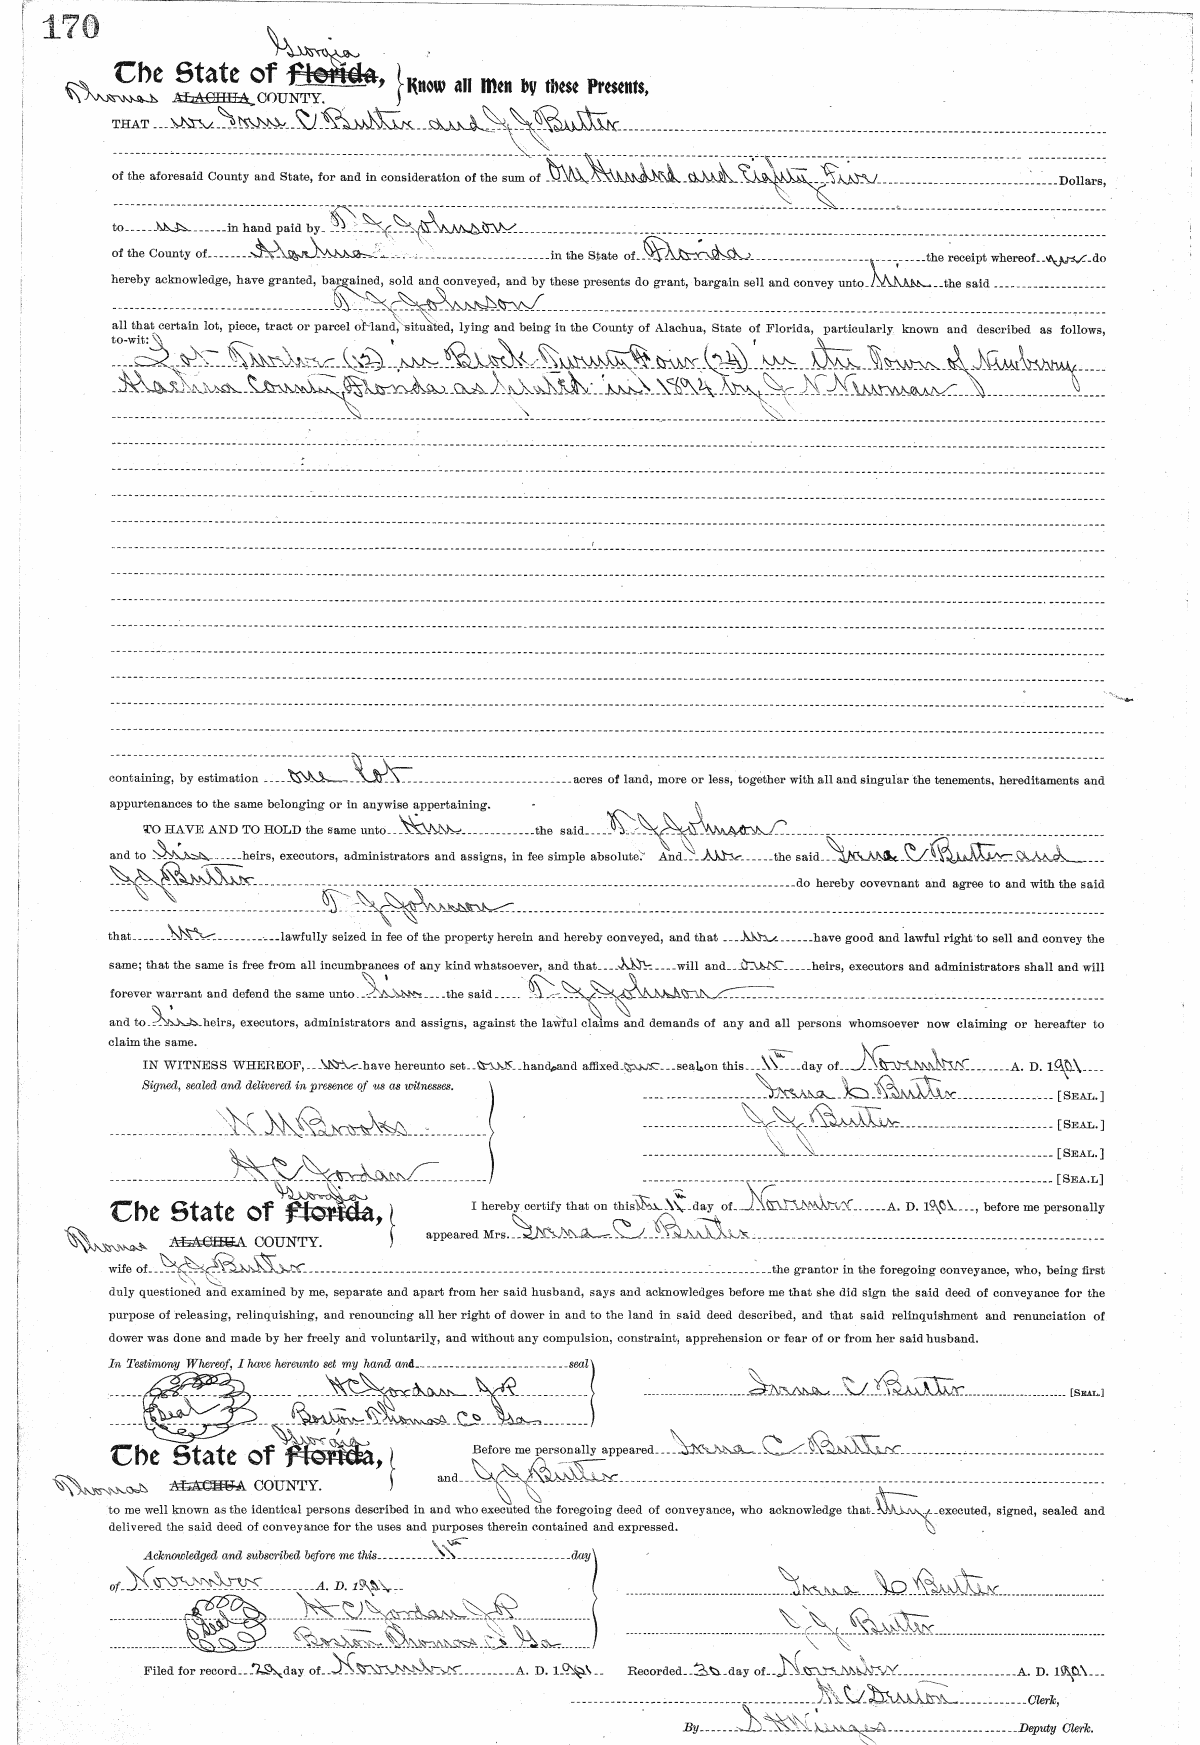 170
Georgia
The State of Florida, Know all Men by these Presents,
Thomas ALACHUA COUNTY.
THAT we Irene C Butler and J J Butler
of the aforesaid County and State, for and in consideration of the sum of One Hundred and Eighty Five Dollars,
to us in hand paid by T J Johnson
of the County of Alachua in the State of Florida the receipt whereof we do
hereby acknowledge, have granted, bargained, sold and conveyed, and by these presents do grant, bargain sell and convey unto Him the said
T J Johnson
all that certain lot, piece, tract or parcel of land, situated, lying and being in the County of Alachua, State of Florida, particularly known and described as follows,
to-wit:
Lot Twelve (12) in Block Twenty Four (24) in the Town of Newberry
Alachua County, Florida as platted in 1894 by J N Newman
containing, by estimation one lot acres of land, more or less, together with all and singular the tenements, hereditaments and
appurtenances to the same belonging or in anywise appertaining.
TO HAVE AND TO HOLD the same unto Him the said T J Johnson
and to his heirs, executors, administrators and assigns, in fee simple absolute. And we the said Irena C Butler and
J J Butler do hereby covevnant and agree to and with the said
T J Johnson
that we lawfully seized in fee of the property herein and hereby conveyed, and that we have good and lawful right to sell and convey the
same; that the same is free from all incumbrances of any kind whatsoever, and that we will and our heirs, executors and administrators shall and will
forever warrant and defend the same unto him the said T J Johnson
and to his heirs, executors, administrators and assigns, against the lawful claims and demands of any and all persons whomsoever now claiming or hereafter to
claim the same.
IN WITNESS WHEREOF, we have hereunto set our hands and affixed our seals on this 11th day of November A. D. 1901
Signed, sealed and delivered in presence of us as witnesses.
Irena C Butler [SEAL.]
W M Brooks J J Butler [SEAL.]
[SEAL.]
H C Jordan [SEA.L]
Georgia
The State of Florida, I hereby certify that on this the 11th day of November A. D. 1901, before me personally
Thomas ALACHUA COUNTY. appeared Mrs. Irena C Butler
wife of J J Butler the grantor in the foregoing conveyance, who, being first
duly questioned and examined by me, separate and apart from her said husband, says and acknowledges before me that she did sign the said deed of conveyance for the
purpose of releasing, relinquishing, and renouncing all her right of dower in and to the land in said deed described, and that said relinquishment and renunciation of
dower was done and made by her freely and voluntarily, and without any compulsion, constraint, apprehension or fear of or from her said husband.
In Testimony Whereof, I have hereunto set my hand and seal
H C Jordan J P Irena C Butler [SEAL.]
Seal Boston Thomas Co Ga
Georgia
The State of Florida, Before me personally appeared Irena C Butler
Thomas ALACHUA COUNTY. and J J Butler
to me well known as the identical persons described in and who executed the foregoing deed of conveyance, who acknowledge that they executed, signed, sealed and
delivered the said deed of conveyance for the uses and purposes therein contained and expressed.
Acknowledged and subscribed before me this 11th day
of November A. D. 1901 Irena C Butler
Seal H C Jordan J P J J Butler
Boston Thomas Co Ga
Filed for record 29 day of November A. D. 1901 Recorded 30 day of November A. D. 1901
H C Denton Clerk,
By S H Wienges Deputy Clerk.